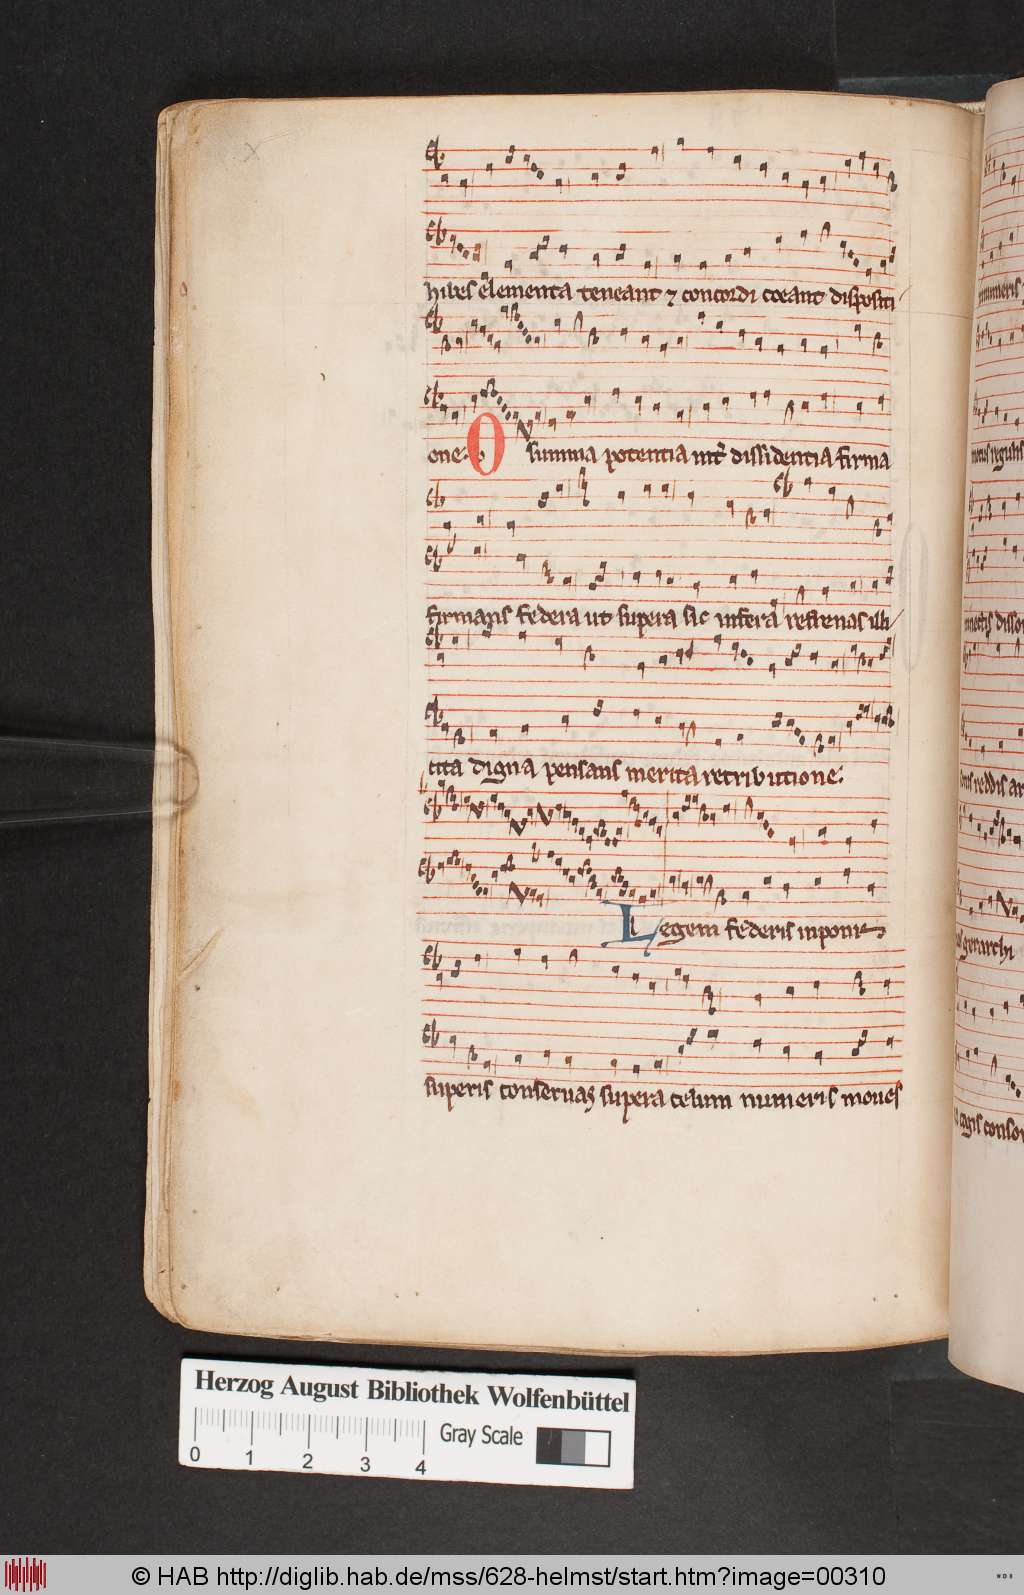 hibes elementa teneant ⁊ concordi coeant dispositi
one. O summa potentia int̉ dissidentia firma
firmans federa ut supera sic infera refrenas illi
cita digna pensans merita retributione.
Legem federis inponis
superis conseruas supera celum numeris moues
Herzog August Bibliothek Wolfenbüttel
Gray Scale
0 1 2 3 4
© HAB http://diglib.hab.de/mss/628-helmst/start.htm?image=00310